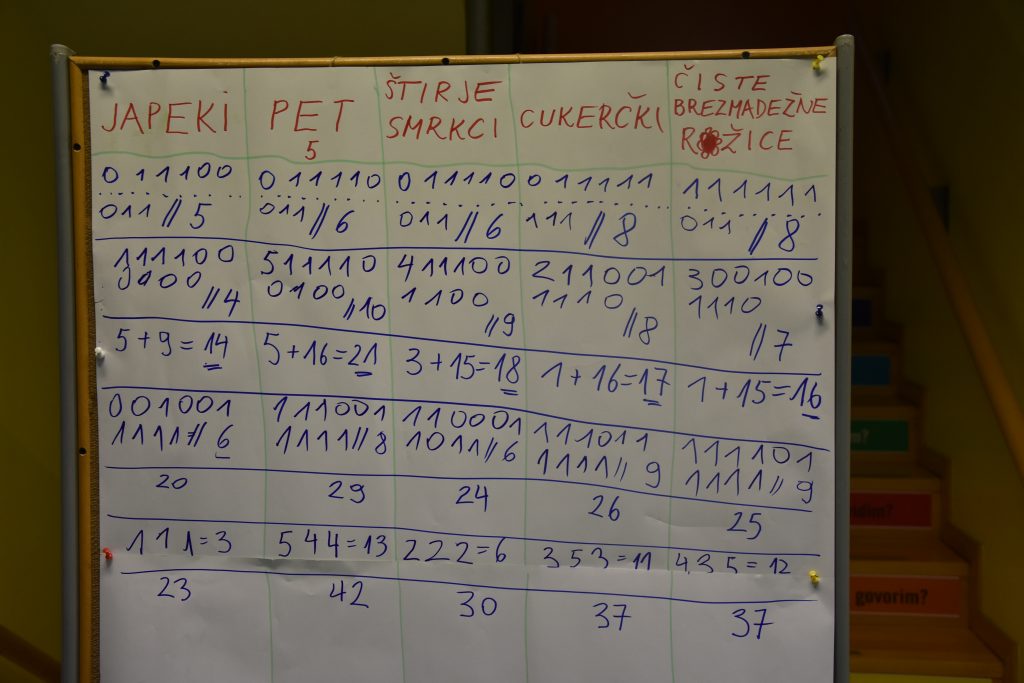 JAPEKI PET 5 ŠTIRJE SMRKCI CUKERČKI ČISTE BREZMADEŽNE ROŽICE
011100 011110 011110 011111 111111
011//5 011//6 011//6 111//8 011//8
111100 511110 411100 211001 300100
0100//4 0100//10 1100//9 1110//8 1110//7
5+9=14 5+16=21 3+15=18 1+16=17 1+15=16
001001 111001 110001 111011 111101
1111//6 1111//8 1011//6 1111//9 1111//9
20 29 24 26 25
111=3 544=13 222=6 353=11 435=12
23 42 30 37 37
m?
dim?
govorim?